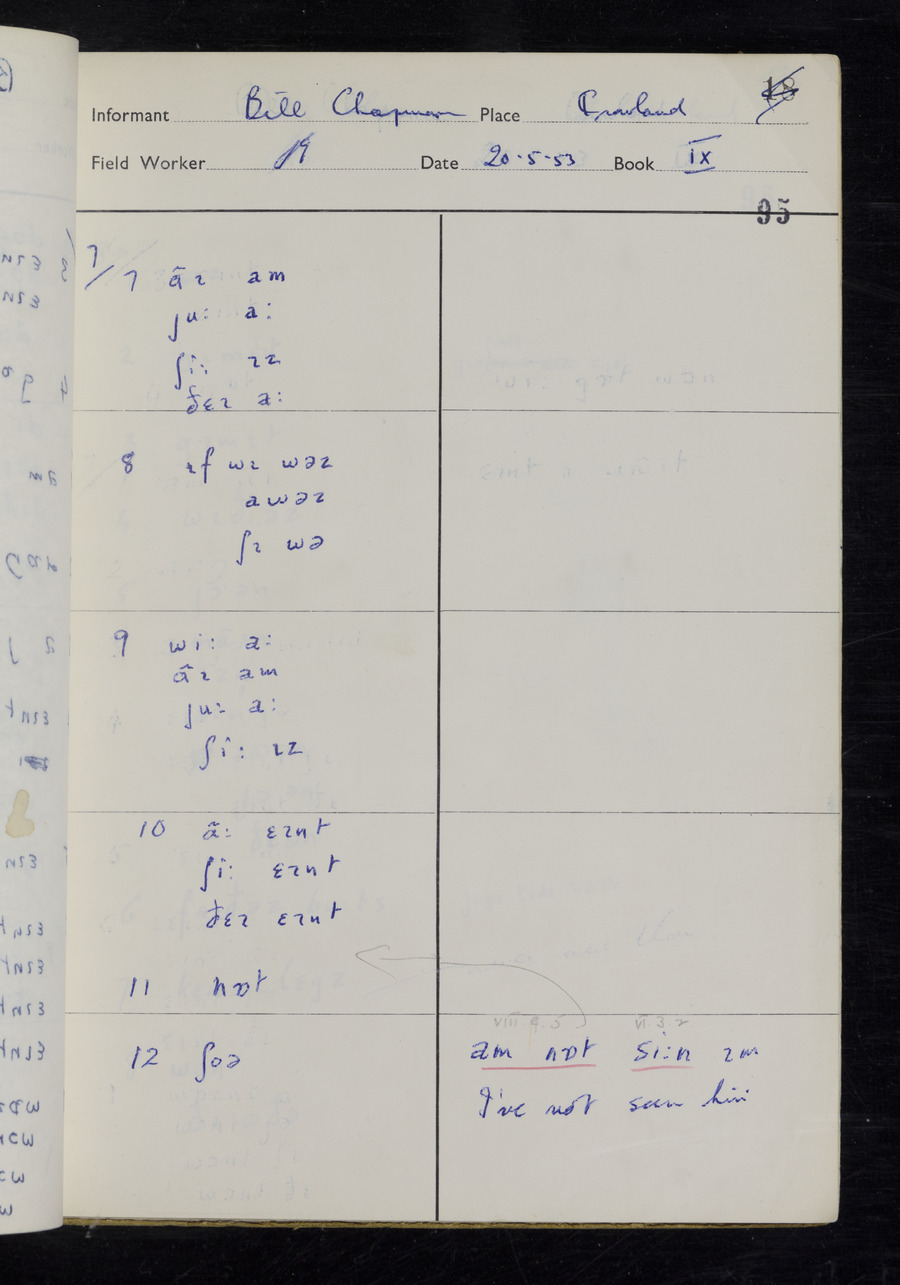 18
Informant Bill Chapman Place Crowland
Field Worker Date 20-5-53 Book IX
95
7/7 ãɪ am
ju: a:
ʃi: ɪz
ðɛɪ a:
8 ɪf wɪ wəz
a wəz
ʃɪ wə
9 wi: a:
ãɪ am
ju: a:
ʃi: ɪz
10 ã: ɛɪnt
ʃi: ɛɪnt
ðɛɪ ɛɪnt
11 nɒt
VIII.9.5 VI.3.2
12 ʃoə am nɒt si:n ɪm
I've not seen him